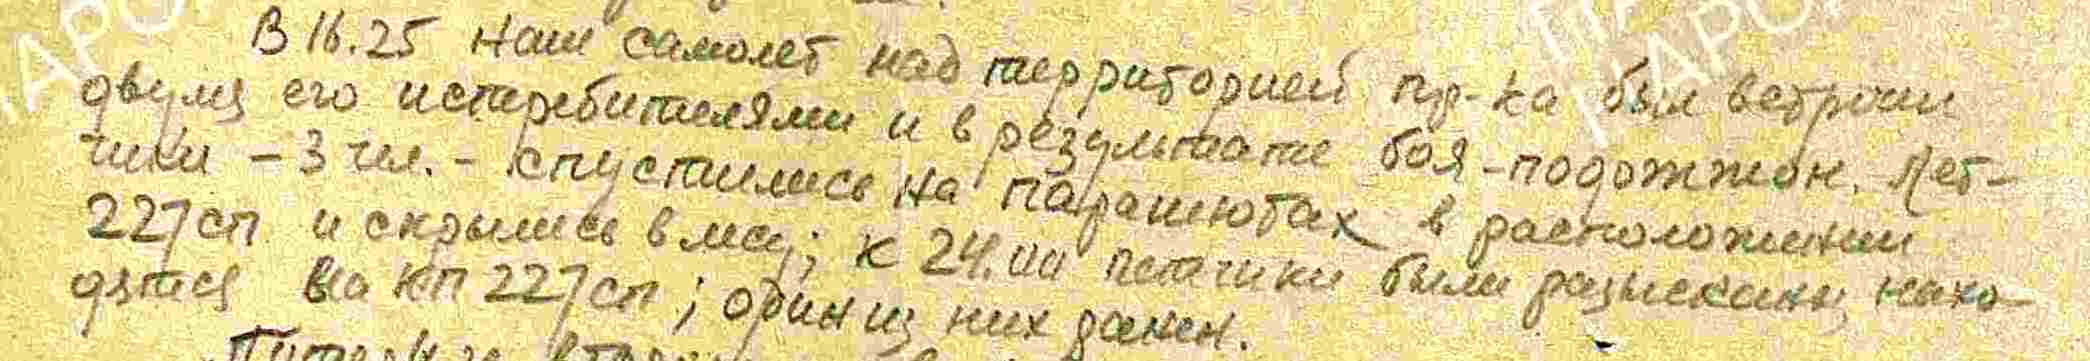 В 16.25 наш самолет над территорией пр-ка был встречен
двумя его истребителями и в результате боя - подожжен. Лет-
чики - 3 чел. - спустились на парашютах в расположении
227 сп и скрылись в лесу; к 24.00 летчики были разысканы, нахо-
дятся на КП 227 сп; один из них ранен.